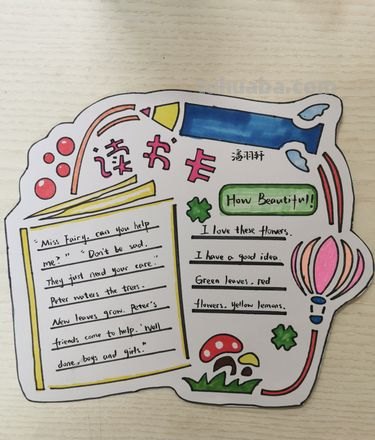 读书卡
潘羽轩
How Beautiful!
"Miss Fairy, can you help
me?" "Don't be sad.
They just need your care."
Peter waters the trees.
New leaves grow. Peter's
friends come to help. "Well
done, boys and girls."
I love these flowers.
I have a good idea
Green leaves, red
flowers, yellow lemons.